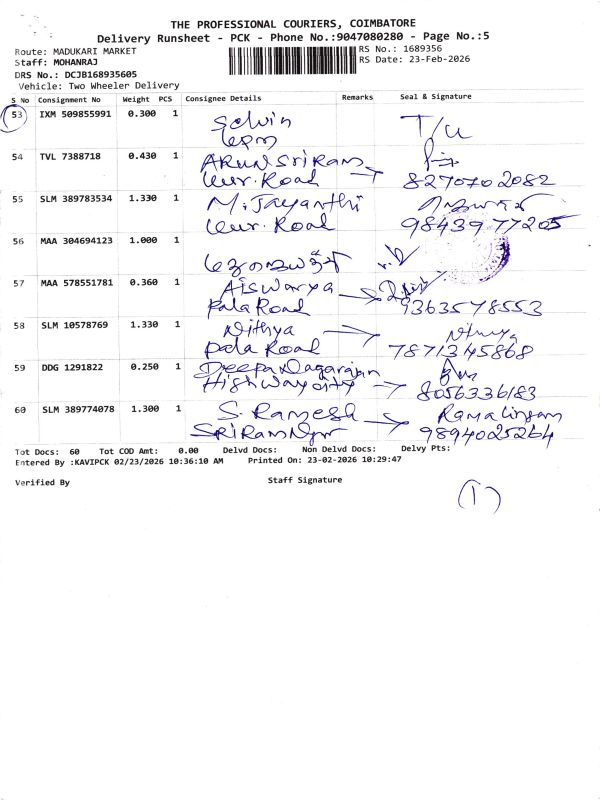 THE PROFESSIONAL COURIERS, COIMBATORE
Delivery Runsheet - PCK - Phone No.:9047080280 - Page No.:5
Route: MADUKARI MARKET
RS No.: 1689356
Staff: MOHANRAJ
RS Date: 23-Feb-2026
DRS No.: DCJB168935605
Vehicle: Two Wheeler Delivery
S No Consignment No Weight PCS Consignee Details Remarks Seal & Signature
53 IXM 509855991 0.300 1 Selvin
54 TVL 7388718 0.430 1 ARUN Sri Ram
Road 8270702082
55 SLM 389783534 1.330 1 M. Jayanthi
Road 9843977205
56 MAA 304694123 1.000 1
57 MAA 578551781 0.360 1 Aiswarya
Pala Road 9363578553
58 SLM 10578769 1.330 1 Nithya
Pala Road 7871345868
59 DDG 1291822 0.250 1 Deepa Nagarajan
Highway city 8056336183
60 SLM 389774078 1.300 1 S. Ramesh Ramalingam
SRI Ram Ngr 9894025264
Tot Docs: 60 Tot COD Amt: 0.00 Delvd Docs: Non Delvd Docs: Delvy Pts:
Entered By :KAVIPCK 02/23/2026 10:36:10 AM Printed On: 23-02-2026 10:29:47
Verified By Staff Signature
(1)